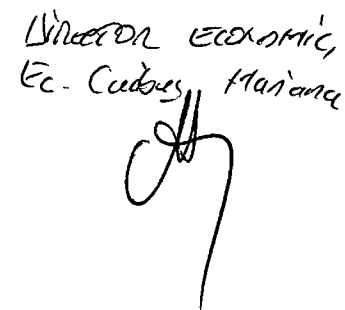 Director Economic,
Ec. Mariana